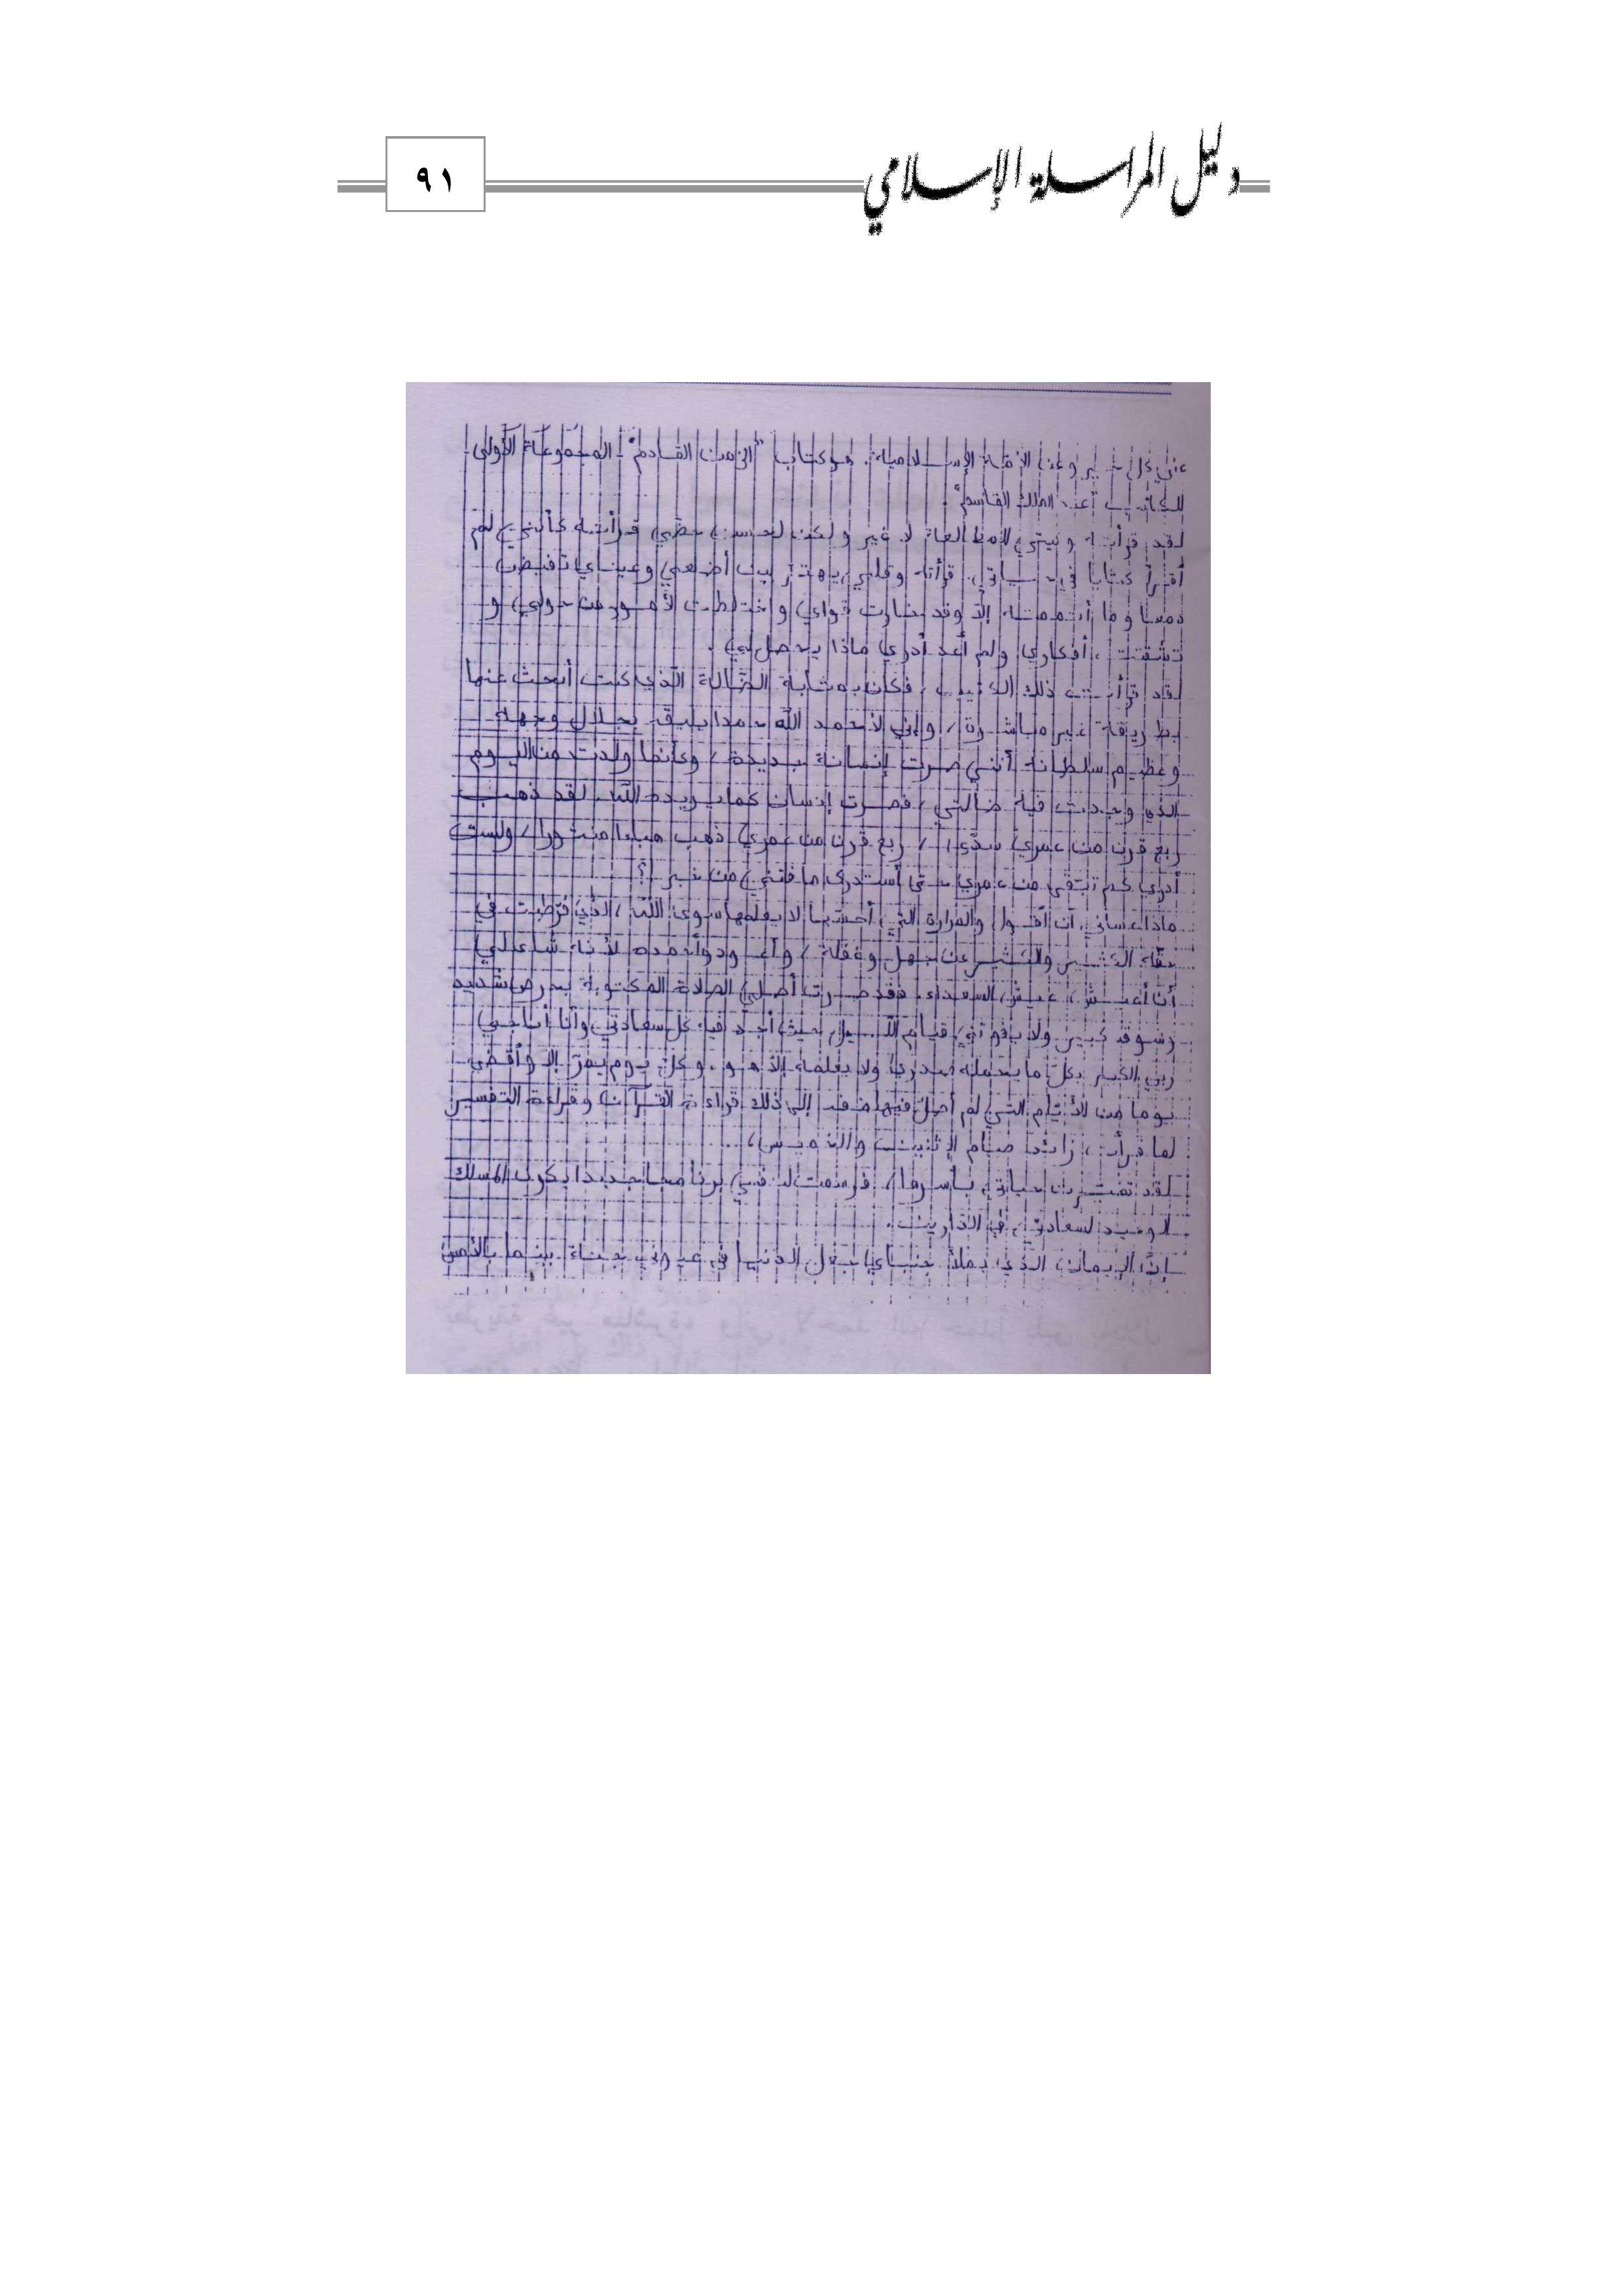 دليل المراسلة الإسلامي
٩١
عني كل خير وعن الأمة الإسلامية. هو كتاب "الزمن القادم" - المجموعة الأولى -
للكاتب "عبد الملك القاسم".
لقد قرأته ونيتي للمطالعة لا غير ولكن لحسن حظي قرأته كأنني لم
أقرأ كتابا في حياتي. قرأته وقلبي يهتز بين أضلعي وعيناي تفيض
دمعا وما أتممته إلا وقد خارت قواي واختلطت الأمور من حولي و
تشتتت أفكاري ولم أعد أدري ماذا يحصل لي.
لقد قرأت ذلك الكتيب، فكان بمثابة الضالة الذي كنت أبحث عنها
بطريقة غير مباشرة، وإني لأحمد الله حمدا يليق بجلال وجهه
وعظيم سلطانه أنني صرت إنسانة جديدة، وكأنما ولدت من اليوم
الذي وجدت فيه ضالتي، فصرت إنسان كما يريده الله. لقد ذهب
ربع قرن من عمري سدى، ربع قرن من عمري ذهب هباءا منثورا، ولست
أدري كم تبقى من عمري حتى أستدرك ما فاتني من خير !؟
ماذا عساني أن أقول والمرارة التي أحس بها لا يعلمها سوى الله، الذي فرطت في
حقه الكثير والكثير عن جهل وغفلة، وأعود وأحمده لأنه شاء لي
أن أعيش عيش السعداء. فقد صرت أصلي الصلاة المكتوبة بحرص شديد
وشوق كبير ولا يفوتني قيام الليل حيث أجد فيه كل سعادتي وأنا أناجي
ربي بكل ما يحمله صدري ولا يعلمه إلا هو. وكل يوم يمر إلا وأقضي
يوما من الأيام التي لم أصل فيها ضف إلى ذلك قراءة القرآن وقراءة التفسير
لما قرأت، زائد صيام الإثنين والخميس، ...
لقد تغيرت حياتي بأسرها، فرسمت لنفسي برنامجا جديدا يكون المسلك
الوحيد لسعادتي في الدارين.
إن الإيمان الذي يملأ جنباي جعل الدنيا في عيوني جنة بينما بالأمس